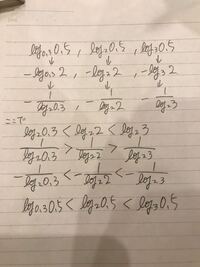 log₀.₃0.5 , log₂0.5 , log₃0.5
↓ ↓ ↓
-log₀.₃2 , -log₂2 , -log₃2
↓ ↓ ↓
-1/log₂0.3 , -1/log₂2 -1/log₂3
ここで
log₂0.3 < log₂2 < log₂3
1/log₂0.3 > 1/log₂2 > 1/log₂3
-1/log₂0.3 < -1/log₂2 < -1/log₂3
log₀.₃0.5 < log₂0.5 < log₃0.5